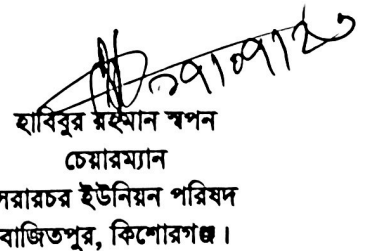 হাবিবুর রহমান স্বপন
চেয়ারম্যান
সরারচর ইউনিয়ন পরিষদ
বাজিতপুর, কিশোরগঞ্জ।